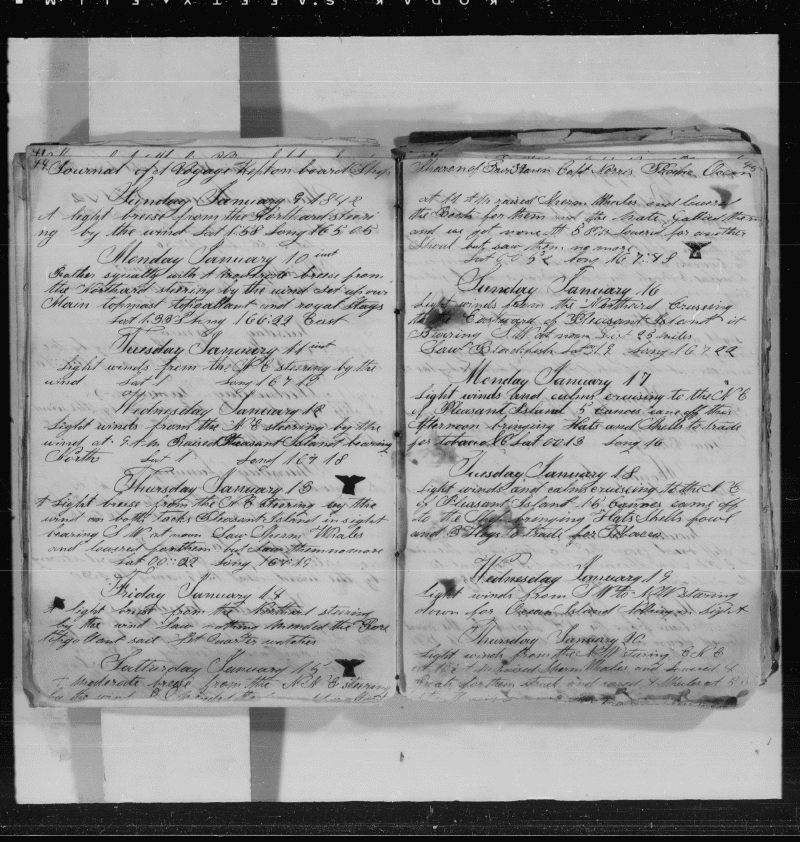 44 Journal of A Voyage Kept on board Ship
Sunday January 9 1842
A light breeze from the Northard steering
by the wind Lat 1.58 Long 165.05
Monday January 10 inst
Weather squally with a moderate breeze from
the Northard stering by the wind set up our
Main topmast topgallant and royal Stays
Lat 1.33 Long 166.22 East
Tuesday January 11 inst
Light winds from the N E steering by the
wind Lat 1 Long 167 12
Wednesday January 12
Light winds from the N E steering by the
wind at A M Raised Pleasant Island bearing
North Lat 1 Long 167 18
Thursday January 13
A Light breeze from the N E steering by the
wind on both Tacks Pleasant Island in sight
bearing S W at noon Saw Sperm Whales
and lowered for them but saw them no more
Lat 00.22 Long 167 19
Friday January 14
A light breeze from the Northard steering
by the wind Saw nothing mended the Fore
topgallant sail Quarter watches
Satturday January 15
A Moderate breeze from the N N E steering
by the wind
Sharon of Fair Haven Capt Norris Pacific Ocean 45
at 11 A M raised Sperm Whales and lowered
the Boats for them and the Mate gallied them
and we got none At lowered for another
Shoal but saw them no more
Lat 00.52 Long 167.48
Sunday January 16
Light winds from the Northard Cruising
the Eastward of Pleasant Island it
Bearing S W at noon Dist 25 miles
Saw Blackfish Long 167 22
Monday January 17
Light winds and calms cruising to the N E
of Pleasant Island 5 Canoes came off this
Afternoon bringing Hats and Shells to trade
for tobacco &C Lat 00 13 Long 16
Tuesday January 18
Light winds and calms cruising to the N E
of Pleasant Island 16 Cannoes came off
to the Ship bringing Hats Shells fowl
and 3 Hogs to trade for Tobacco
Wednesday January 19
Light winds from S W to N W steering
down for Ocean Island Nothing in Sight
Thursday January 20
Light winds from the N W stering E N E
at A M raised Sperm Whales and lowered 4
Boats for them struck and saved 4 Whales at